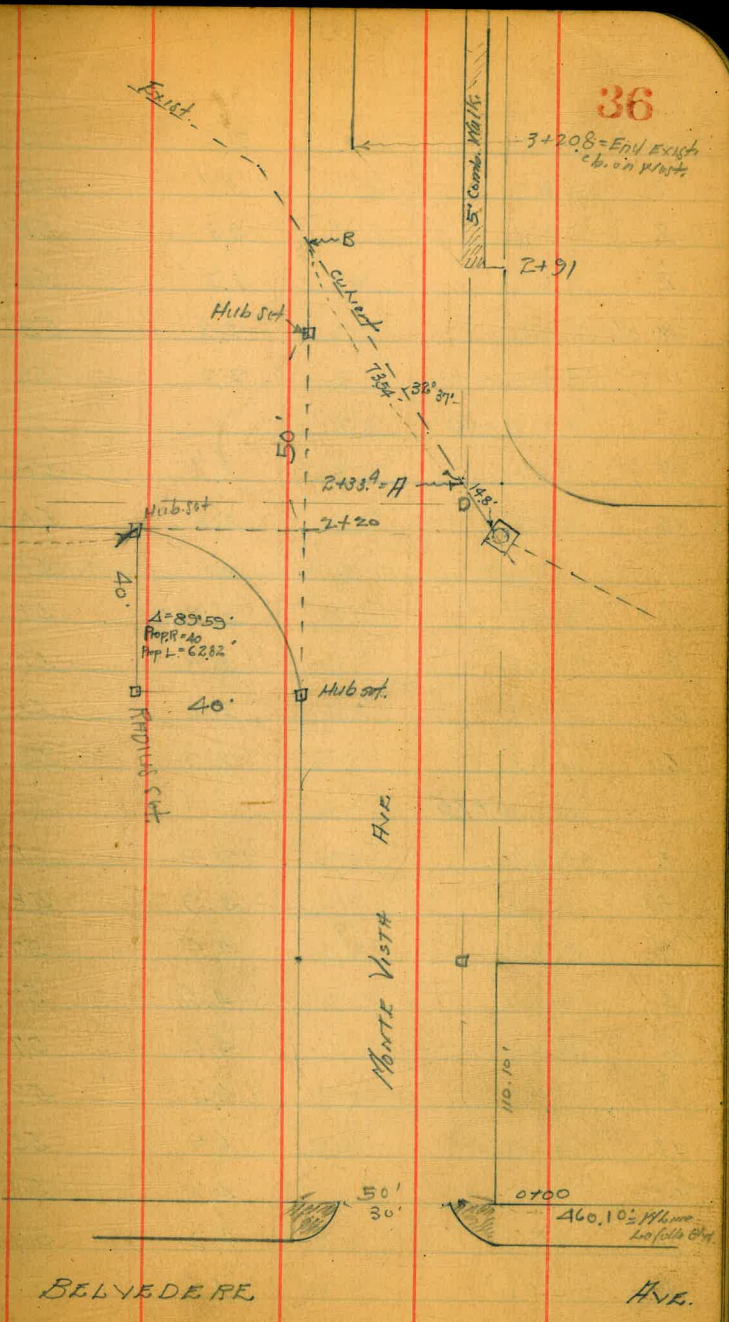 36
Exist.
3+20.8 = End Exist.
cb. on West.
5' Comb. Walk.
B
2+91
Culvert
Hub set
73.54
32° 37'
50'
2+33.9 = A
14.8'
Hub set
2+20
40'
Δ=89°59'
Prop. R=40'
Prop L.=62.82'
Hub set.
40'
RADIUS
MONTE VISTA AVE.
110.10'
50'
30'
0+00
460.10'
BELVEDERE AVE.